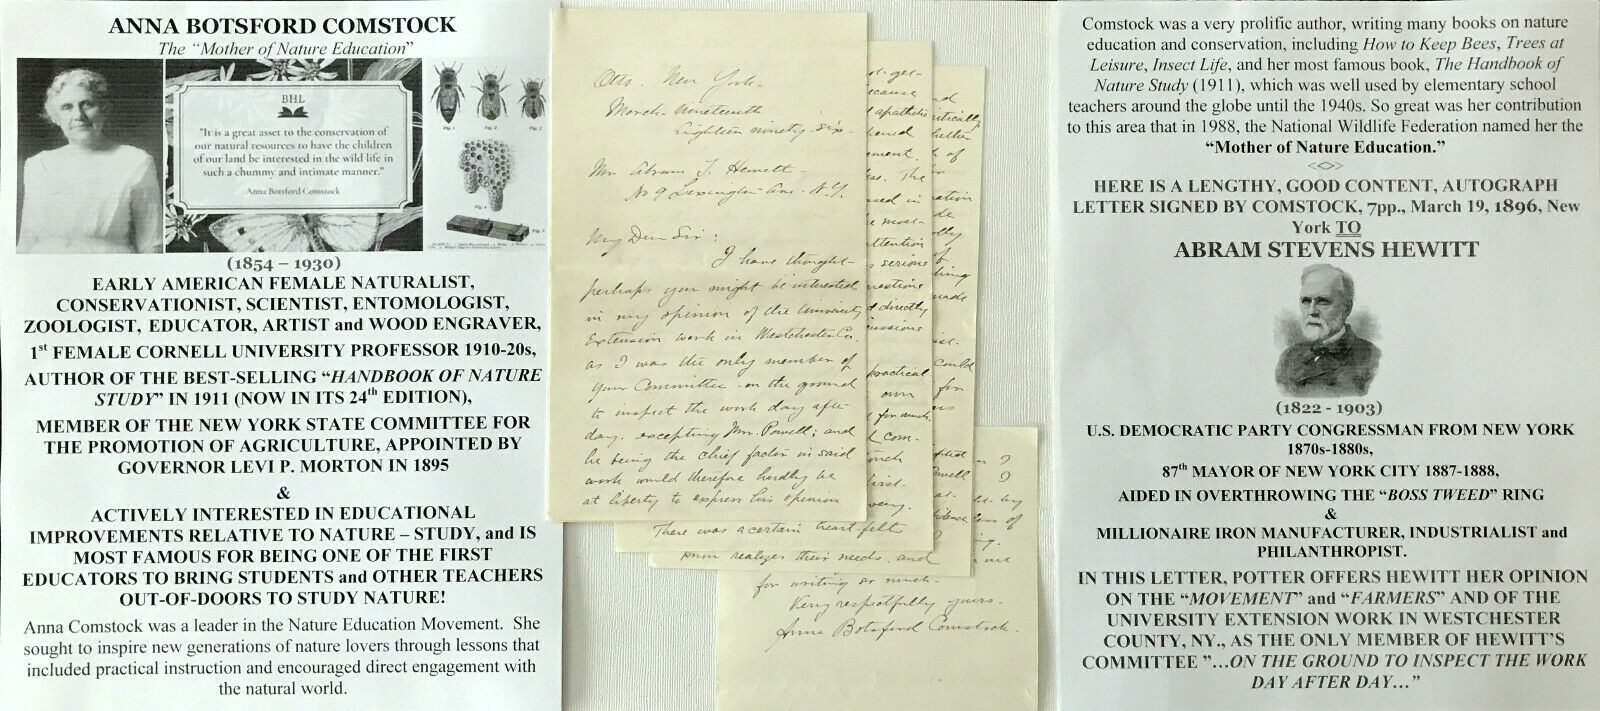 ANNA BOTSFORD COMSTOCK
The “Mother of Nature Education”
BHL
"It is a great asset to the conservation of
our natural resources to have the children
of our land be interested in the wild life in
such a chummy and intimate manner."
Anna Botsford Comstock
Fig. 1
Fig. 2
Fig. 3
Fig. 4
(1854 – 1930)
EARLY AMERICAN FEMALE NATURALIST,
CONSERVATIONIST, SCIENTIST, ENTOMOLOGIST,
ZOOLOGIST, EDUCATOR, ARTIST and WOOD ENGRAVER,
1st FEMALE CORNELL UNIVERSITY PROFESSOR 1910-20s,
AUTHOR OF THE BEST-SELLING “HANDBOOK OF NATURE
STUDY” IN 1911 (NOW IN ITS 24th EDITION),
MEMBER OF THE NEW YORK STATE COMMITTEE FOR
THE PROMOTION OF AGRICULTURE, APPOINTED BY
GOVERNOR LEVI P. MORTON IN 1895
&
ACTIVELY INTERESTED IN EDUCATIONAL
IMPROVEMENTS RELATIVE TO NATURE – STUDY, and IS
MOST FAMOUS FOR BEING ONE OF THE FIRST
EDUCATORS TO BRING STUDENTS and OTHER TEACHERS
OUT-OF-DOORS TO STUDY NATURE!
Anna Comstock was a leader in the Nature Education Movement. She
sought to inspire new generations of nature lovers through lessons that
included practical instruction and encouraged direct engagement with
the natural world.
Otto. New York.
March nineteenth
Eighteen ninety-six-
Mr. Abram S. Hewett-
No 9 Lexington Ave. N.Y.
My Dear Sir:
I have thought-
perhaps you might be interested
in my opinion of the University
Extension work in Westchester Co.
as I was the only member of
your Committee on the ground
to inspect the work day afte-
day. excepting Mr. Powell; and
he being the chief factor in said
work would therefore hardly be
at liberty to express his opinion
There was a certain heart felt
realizes their needs, and
for writing so much.
Very respectfully yours.
Anna Botsford Comstock.
Comstock was a very prolific author, writing many books on nature
education and conservation, including How to Keep Bees, Trees at
Leisure, Insect Life, and her most famous book, The Handbook of
Nature Study (1911), which was well used by elementary school
teachers around the globe until the 1940s. So great was her contribution
to this area that in 1988, the National Wildlife Federation named her the
“Mother of Nature Education.”
HERE IS A LENGTHY, GOOD CONTENT, AUTOGRAPH
LETTER SIGNED BY COMSTOCK, 7pp., March 19, 1896, New
York TO
ABRAM STEVENS HEWITT
(1822 - 1903)
U.S. DEMOCRATIC PARTY CONGRESSMAN FROM NEW YORK
1870s-1880s,
87th MAYOR OF NEW YORK CITY 1887-1888,
AIDED IN OVERTHROWING THE “BOSS TWEED” RING
&
MILLIONAIRE IRON MANUFACTURER, INDUSTRIALIST and
PHILANTHROPIST.
IN THIS LETTER, POTTER OFFERS HEWITT HER OPINION
ON THE “MOVEMENT” and “FARMERS” AND OF THE
UNIVERSITY EXTENSION WORK IN WESTCHESTER
COUNTY, NY., AS THE ONLY MEMBER OF HEWITT’S
COMMITTEE ”…ON THE GROUND TO INSPECT THE WORK
DAY AFTER DAY…”